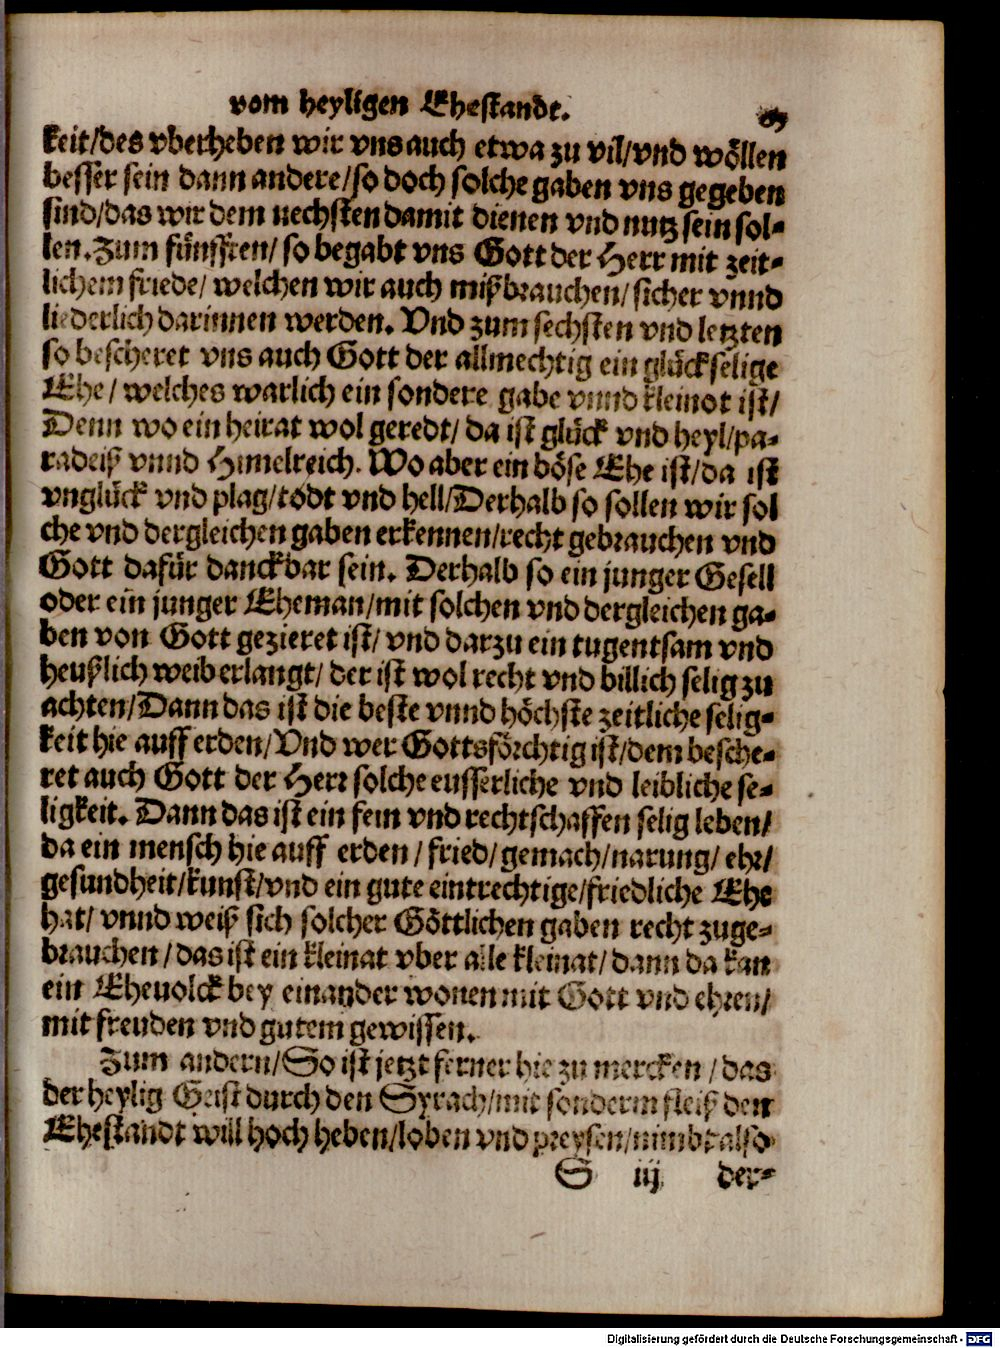 vom heyligen Ehestandt.
keit/des vberheben wir vns auch etwa zu vil/vnd wöllen
besser sein dann andere/so doch solche gaben vns gegeben
sind/das wir dem nechsten damit dienen vnd nutz sein sol-
len. Zum fünfften/ so begabt vns Gott der Herr mit zeit-
lichem friede/ welchen wir auch mißbrauchen/ sicher vnnd
liederlich darinnen werden. Vnd zum sechsten vnd letzten
so bescheret vns auch Gott der allmechtig ein glückselige
Ehe/ welches warlich ein sondere gabe vnnd kleinot ist/
Denn wo ein heirat wol geredt/ da ist glück vnd heyl/pa-
radeiß vnnd Himelreich. Wo aber ein böse Ehe ist/da ist
vnglück vnd plag/todt vnd hell/Derhalb so sollen wir sol
che vnd dergleichen gaben erkennen/recht gebrauchen vnd
Gott dafür danckbar sein. Derhalb so ein junger Gesell
oder ein junger Eheman/mit solchen vnd dergleichen ga-
ben von Gott gezieret ist/ vnd darzu ein tugentsam vnd
heußlich weib erlangt/ der ist wol recht vnd billich selig zu
achten/Dann das ist die beste vnnd höchste zeitliche selig-
keit hie auff erden/Vnd wer Gottsförchtig ist/dem besche-
ret auch Gott der Herr solche eusserliche vnd leibliche se-
ligkeit. Dann das ist ein fein vnd rechtschaffen selig leben/
da ein mensch hie auff erden/ fried/ gemach/narung/ ehr/
gesundheit/kunst/vnd ein gute eintrechtige/friedliche Ehe
hat/ vnnd weiß sich solcher Göttlichen gaben recht zuge-
brauchen/das ist ein kleinat vber alle kleinat/ dann da kan
ein Ehevolck bey einander wonen mit Gott vnd ehren/
mit freuden vnd gutem gewissen.
Zum andern/So ist jetzt ferner hie zu mercken/das
der heylig Geist durch den Syrach/mit sonderm fleiß den
Ehestandt will hoch heben/loben vnd preysen/nimbt also
S iij der-
Digitalisierung gefördert durch die Deutsche Forschungsgemeinschaft - DFG